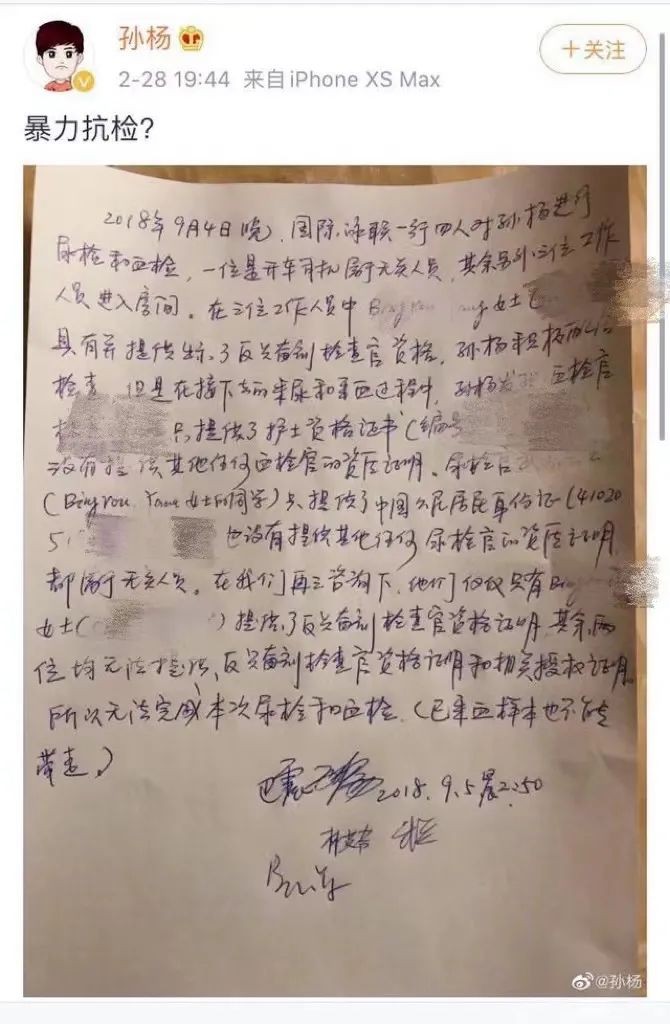 孙杨
+关注
2-28 19:44 来自iPhone XS Max
暴力抗检?
2018年9月4日晚,国际泳联一行四人对孙杨进行
尿检和血检,一位是开车司机属于无关人员,其余另外三位工作
人员进入房间。在三位工作人员中 女士
具有并提供出示了反兴奋剂检查官资格,孙杨积极配合
检查 但是在接下去的采尿和采血过程中,孙杨发现血检官
只提供了护士资格证书(编号
没有提供其他任何血检官的资质证明。尿检官
( 女士的同学)只提供了中国公民居民身份证(41020
5 也没有提供其他任何尿检官的资质证明,
都属于无关人员。在我们再三咨询下,他们仅仅只有
女士( )提供了反兴奋剂检查官资格证明,其余两
位均无法提供反兴奋剂检查官资格证明和相关授权证明。
所以无法完成本次尿检和血检。(已采血样本也不能
带走。)
2018.9.5晨2:50
@孙杨